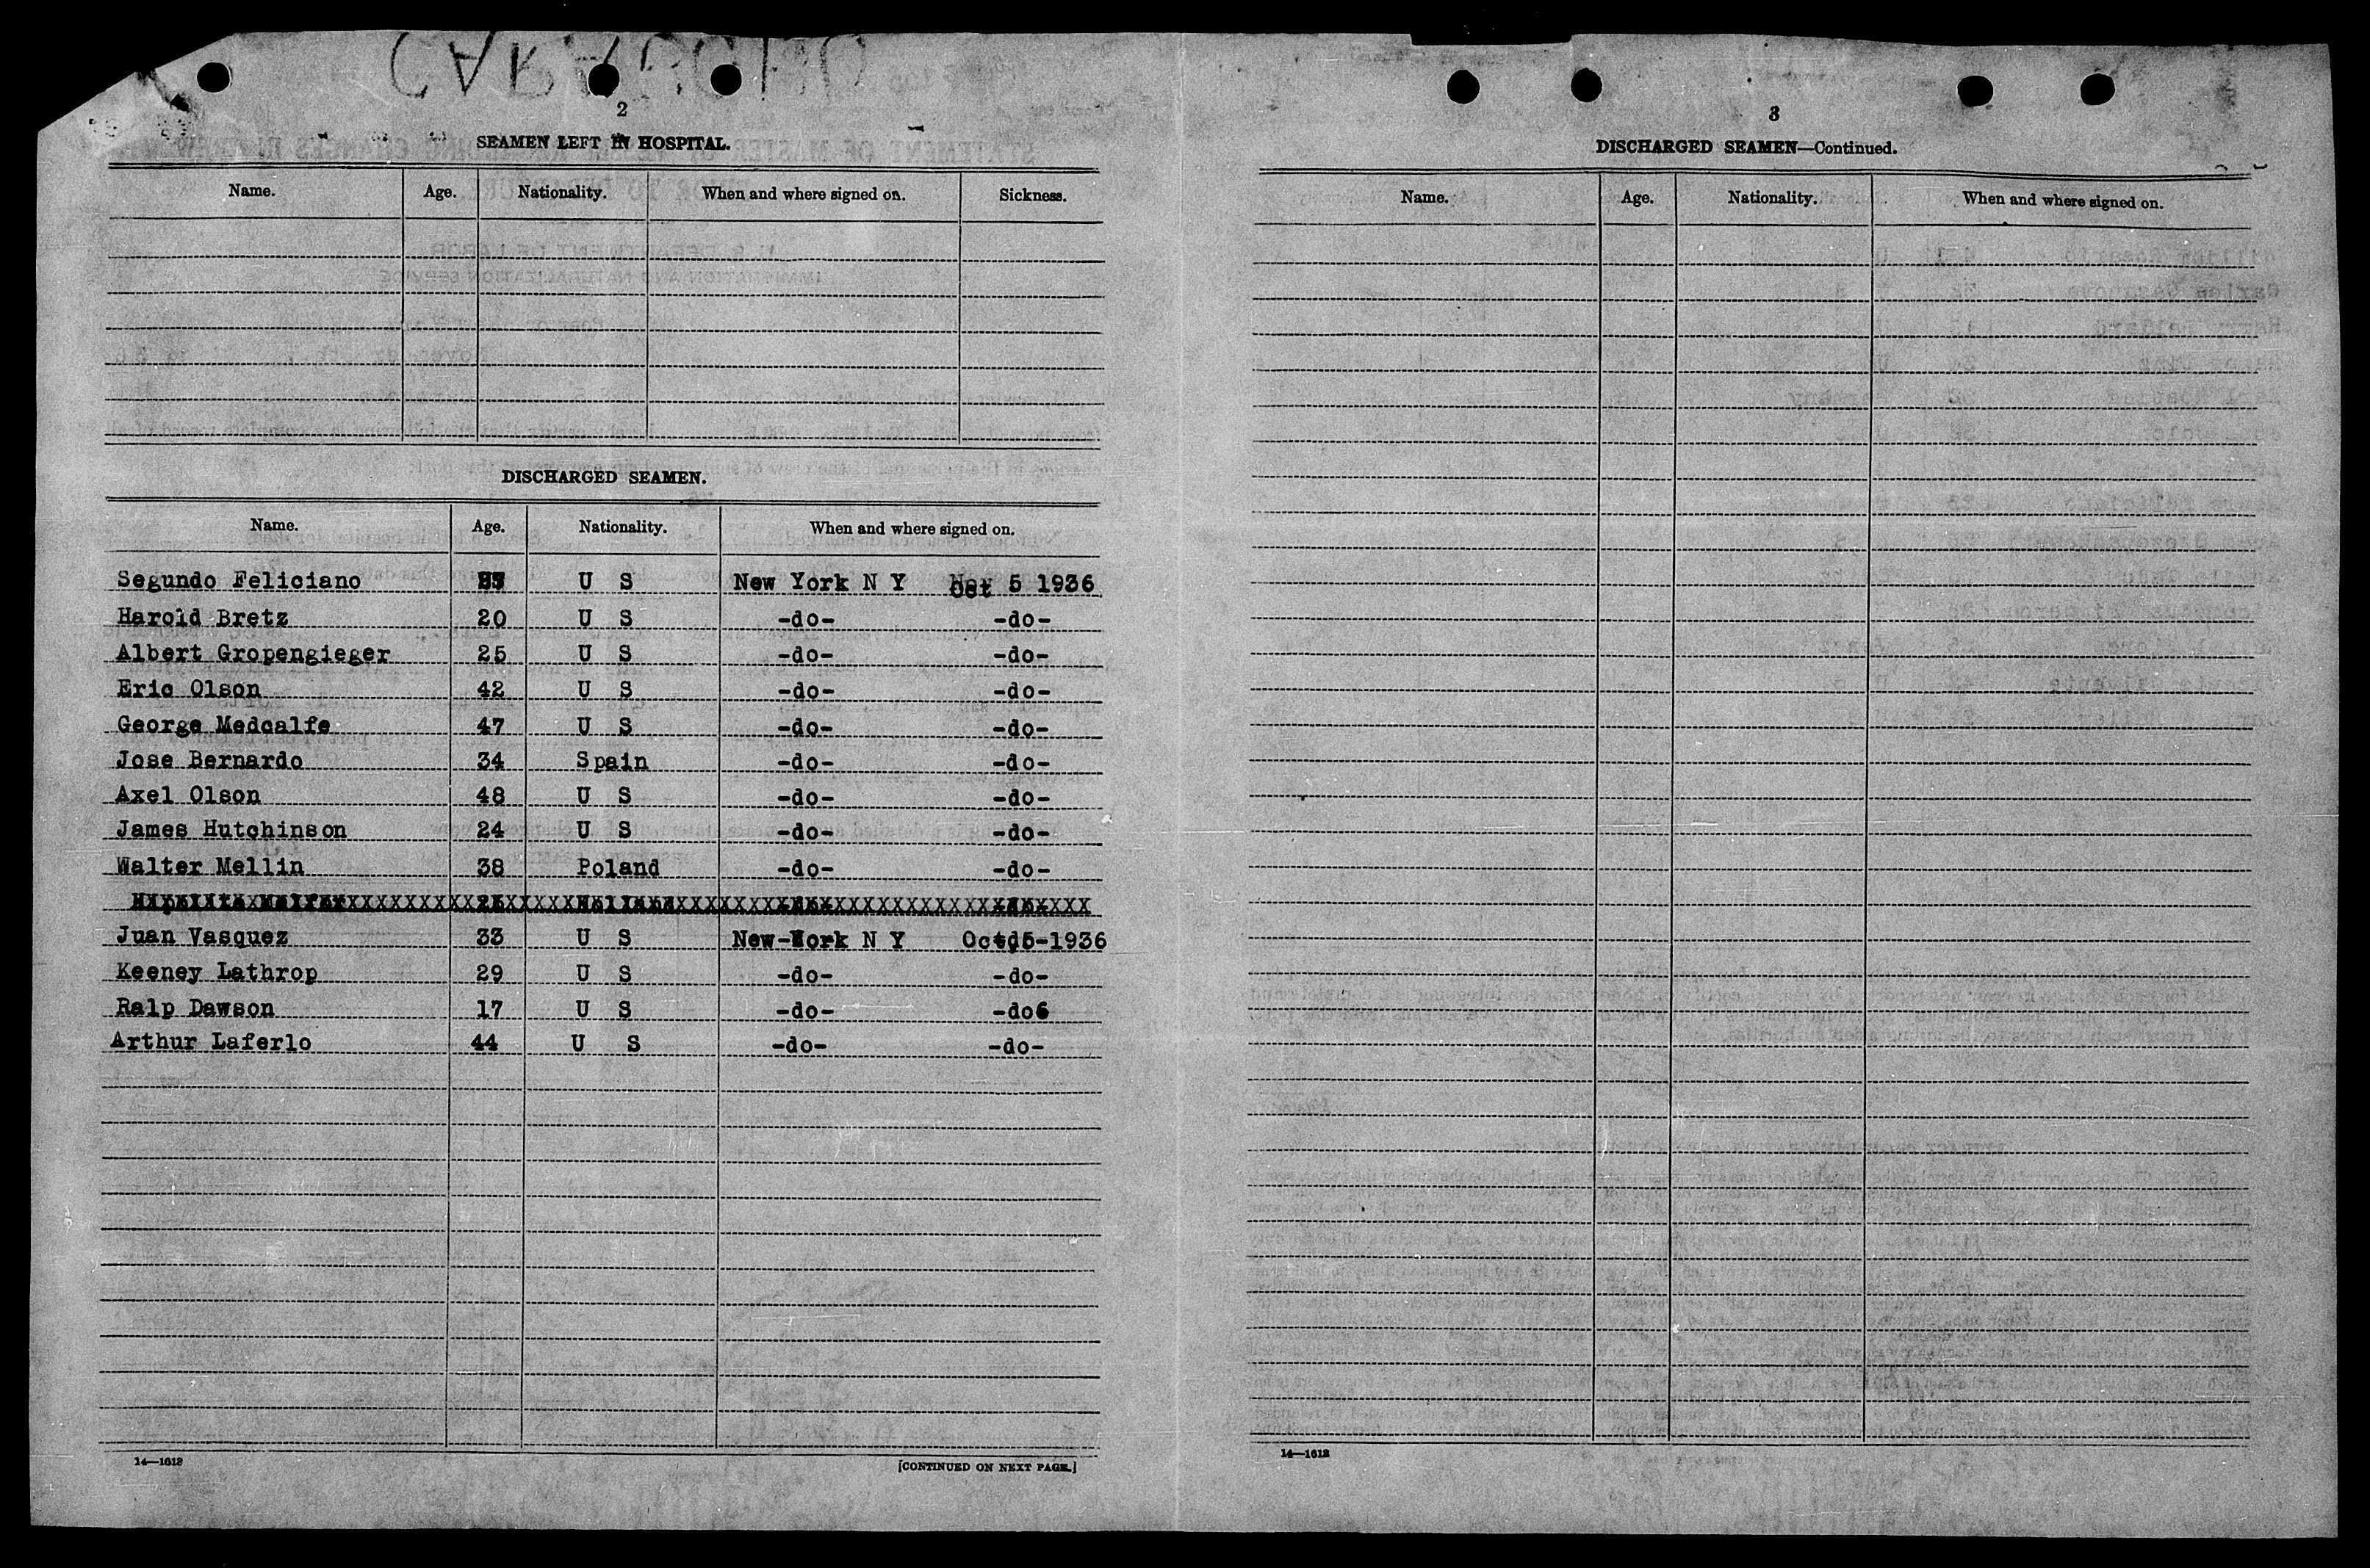 2
SEAMEN LEFT IN HOSPITAL.
Name. Age. Nationality. When and where signed on. Sickness.
DISCHARGED SEAMEN.
Name. Age. Nationality. When and where signed on.
Segundo Feliciano U S New York N Y Oct 5 1936
Harold Bretz 20 U S -do- -do-
Albert Gropengieger 25 U S -do- -do-
Eric Olson 42 U S -do- -do-
George Medcalfe 47 U S -do- -do-
Jose Bernardo 34 Spain -do- -do-
Axel Olson 48 U S -do- -do-
James Hutchinson 24 U S -do- -do-
Walter Mellin 38 Poland -do- -do-
Juan Vasquez 33 U S New York N Y Oct 5-1936
Keeney Lathrop 29 U S -do- -do-
Ralp Dawson 17 U S -do- -do6
Arthur Laferlo 44 U S -do- -do-
14—1612
[CONTINUED ON NEXT PAGE.]
3
DISCHARGED SEAMEN—Continued.
Name. Age. Nationality. When and where signed on.
14—1612